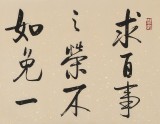 求百事
之榮不
如免一